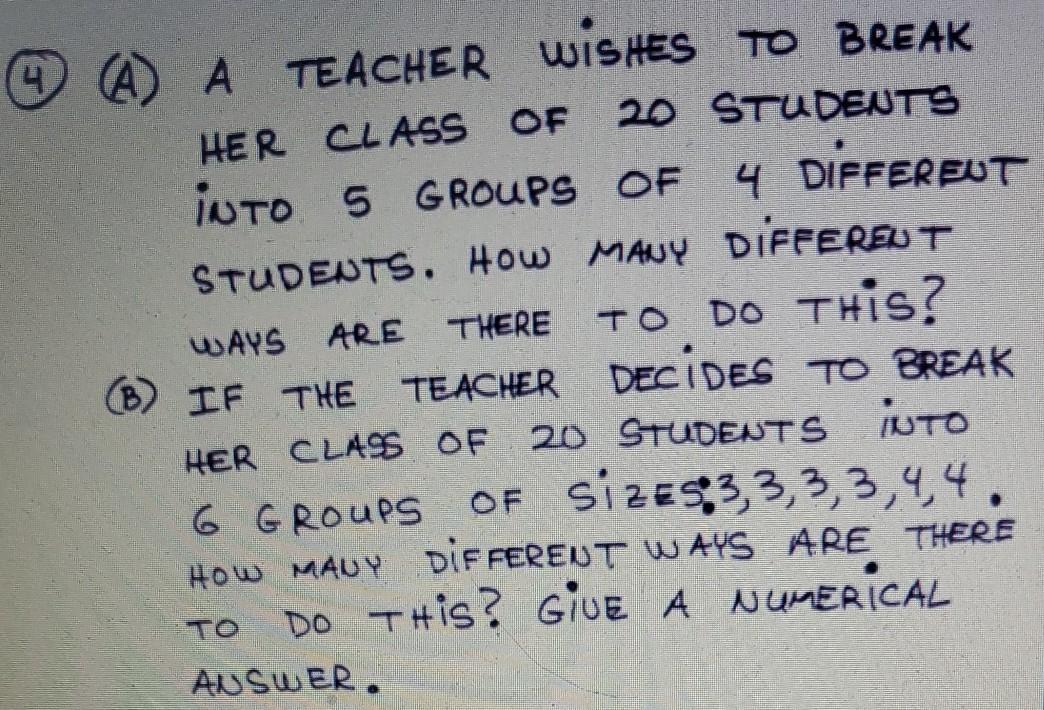 ④ (A) A TEACHER WISHES TO BREAK
HER CLASS OF 20 STUDENTS
INTO 5 GROUPS OF 4 DIFFERENT
STUDENTS. HOW MANY DIFFERENT
WAYS ARE THERE TO DO THIS?
(B) IF THE TEACHER DECIDES TO BREAK
HER CLASS OF 20 STUDENTS INTO
6 GROUPS OF SIZES: 3, 3, 3, 3, 4, 4.
HOW MANY DIFFERENT WAYS ARE THERE
TO DO THIS? GIVE A NUMERICAL
ANSWER.